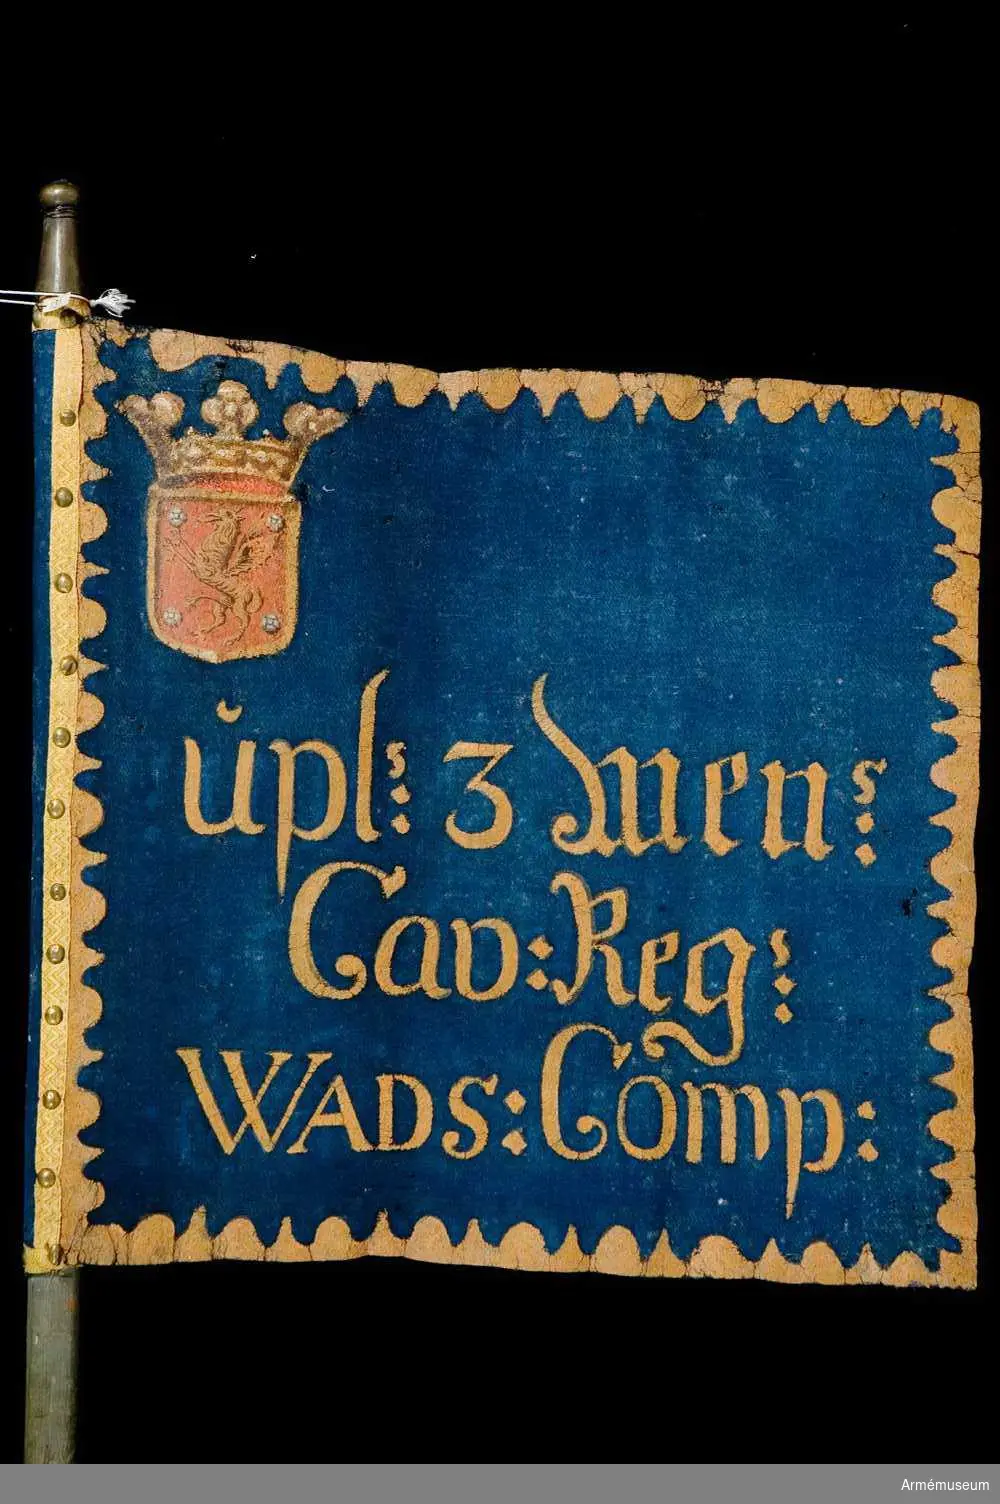 ŭpl: 3 Mens:
Cav: Reg:
WADS: Comp:
Armémuseum